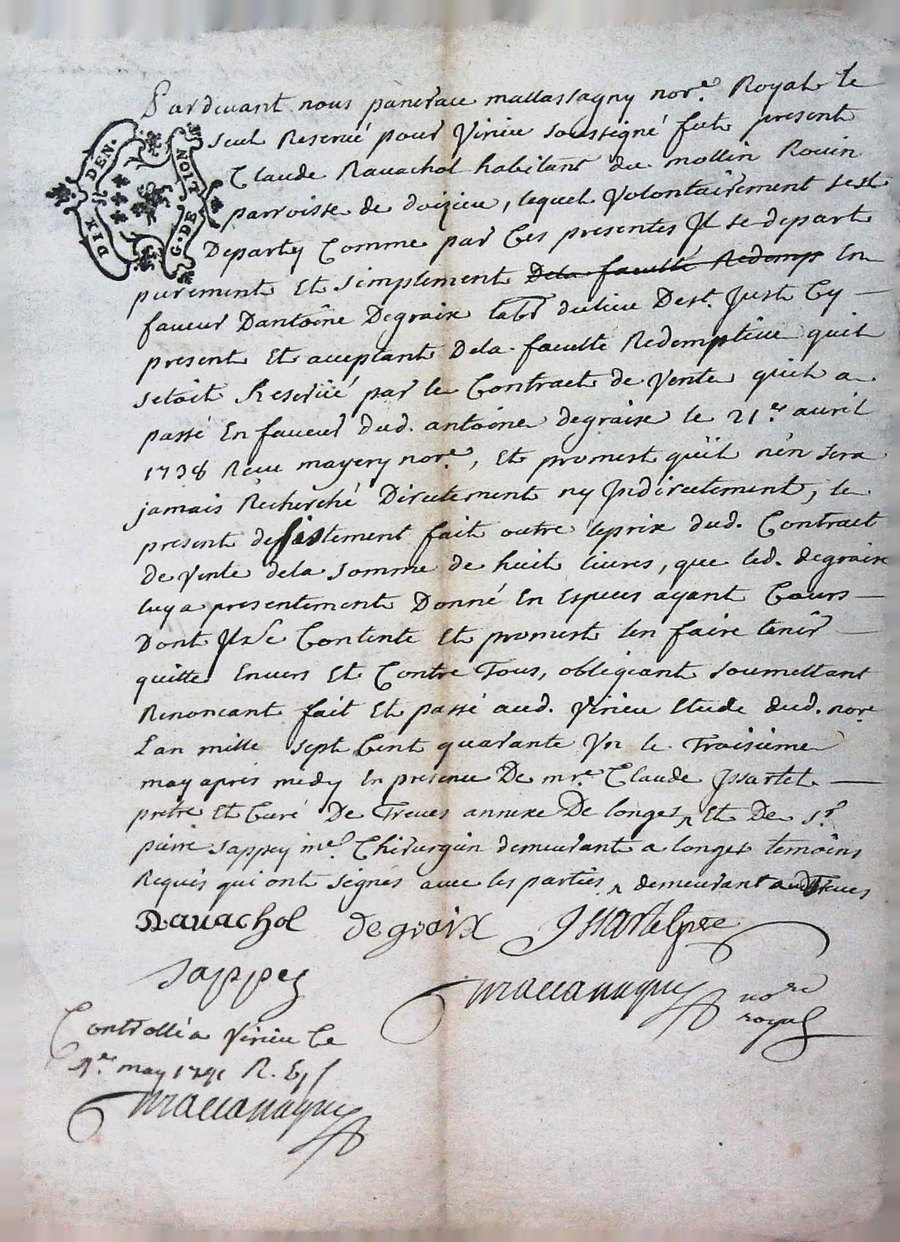 Pardevant nous pancrace mallassagny nore. Royal le
seul Reservé pour Virieu soussigné fut present
Claude Ravachol habitant du mollin Rouin
parroisse de doizieu, lequel Volontairement sest
Departy Comme par Ces presentes Il se depart
purement Et simplement Dela faculté Redemp En
faveur Dantoine Degraix labr dulieu Dest. Just Cy
present Et acceptant Dela faculté Redemptive quil
setoit Reservé par le Contract de Vente quil a
passé En faveur dud. antoine degraix le 21e. avril
1738 Receu mayery nore., Et promest quil n'en sera
jamais Recherché Directement ny Indirectement, le
present desistement fait outre leprix dud. Contract
de Vente dela somme de huit livres, que led. degraix
luy a presentement Donné En Especes ayant Cours
Dont Il se Contente Et promest len faire tenir
quitte Envers Et Contre Tous, obligeant soumettant
Renoncant fait Et passé aud. Virieu Etude dud. nore
Lan mille sept Cent quarante Un le Troisieme
may apres midy En presence De mre. Claude Issartel
pretre Et Curé De Treves annexe De longes Et De sr.
pierre sappey me. Chirurgien demeurant a longes temoins
Requis qui ont signes avec les parties, demeurant aud Treves
DIX DEN.
G. DE NOIT
Ravachol degraix Issartel pre
Sappey
nore
royal
Controllé a Virieu Le
may 1741 R.